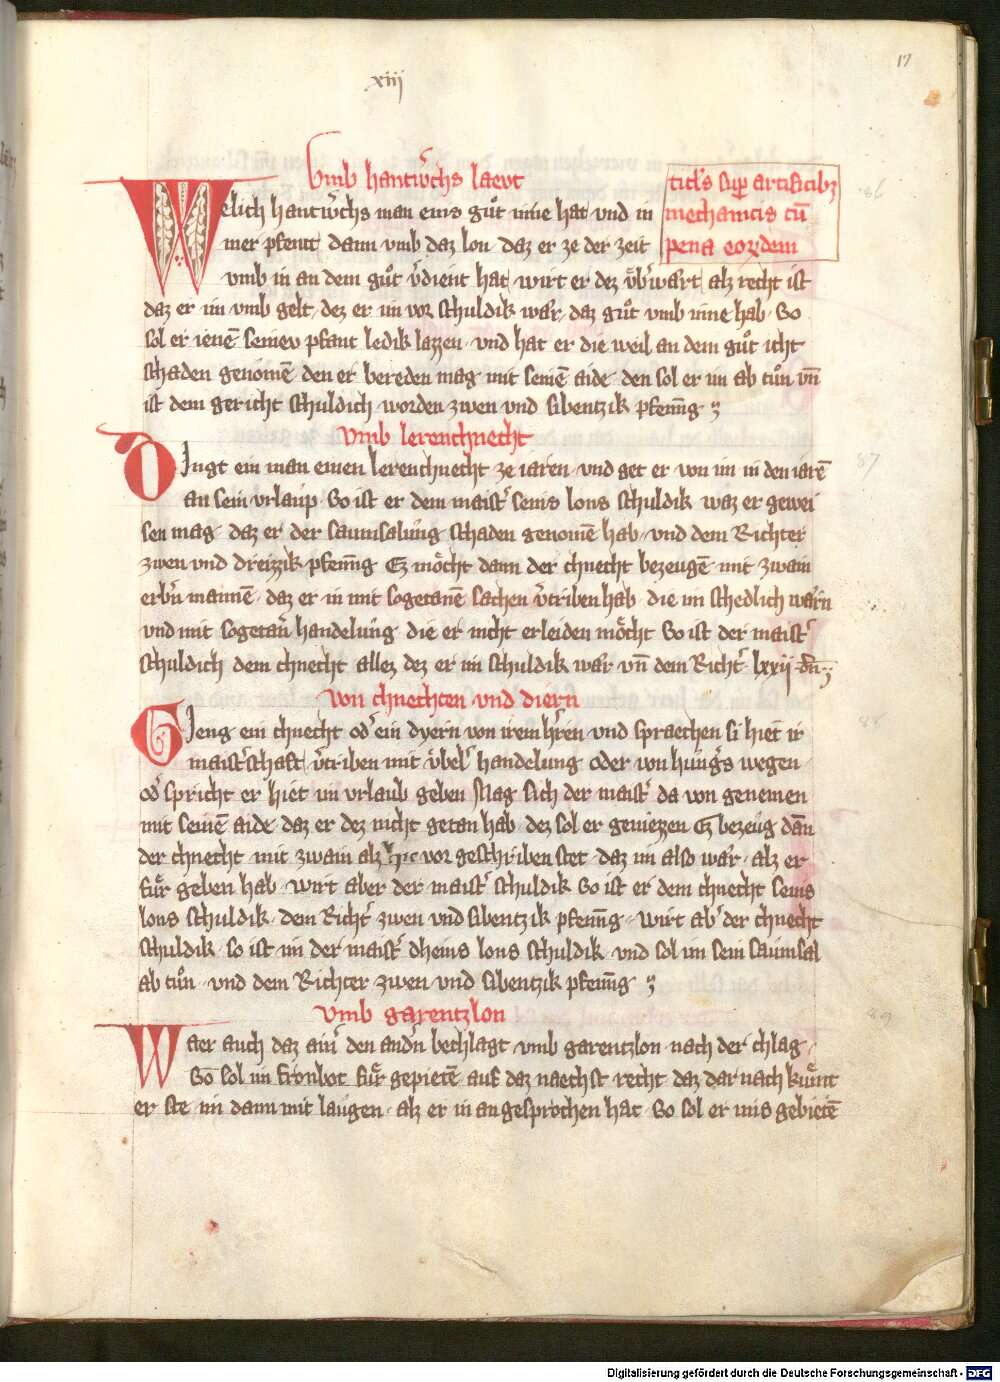 17
xiii
Vmb hantw̉chs laevt
titl̉s sup̱ artificibꝫ
mechanicis cū
pena eorꝫdem
Welich hantw̉chs man eins gůt inne hat vnd in
mer pfent dann vmb daz lon daz er ze der zeit
vmb in an dem gůt v̉dient hat wirt er dez vͤb̉wart alz recht ist
daz er im vmb gelt dez er im vor schuldik wär daz gůt vmb inne hab So
sol er ienē seinev pfant ledik lazzen vnd hat er die weil an dem gůt icht
schaden genomē den er bereden mag mit seinē aide den sol er im ab tůn vn̄
ist dem gericht schuldich worden zwen vnd sibentzik pfenn̄g
Vmb lerenchnecht
Dingt ein man einen lerenchnecht ze iaren vnd get er von im in den iarē
an sein vrlaup So ist er dem maist̉ seins lons schuldik waz er gewei
sen mag daz er der saumsalung schaden genomē hab vnd dem Richter
zwen vnd dreizzik pfenn̄g Ez möcht dann der chnecht bezeugē mit zwain
erb̉n mannē daz er in mit sogetanē sachen v̉triben hab die im schedlich wärn
vnd mit sogetan̉ handelung die er nicht erleiden möcht So ist der maist̉
schuldich dem chnecht allez dez er im schuldik war vn̄ dem Richt̉ lxxij dn̄
von chnechten vnd diern
Gieng ein chnecht od̉ ein dyern von irem h̉ren vnd spraechen si hiet ir
maist̉schaft v̉triben mit vͤbel̉ handelung oder von hung̉s wegen
od̉ spricht er hiet im vrlaub geben Mag sich der maist̉ da von genemen
mit seinē aide daz er dez nicht getan hab dez sol er geniezzen Ez bezeug dan̄
der chnecht mit zwain alz hie vor geschriben stet daz im also wär alz er
für geben hab wirt aber der maist̉ schuldik So ist er dem chnecht seins
lons schuldik dem Richt̉ zwen vnd sibentzik pfenn̄g wirt ab̉ der chnecht
schuldik so ist im der maist̉ dheins lons schuldik vnd sol im sein saumsal
ab tůn vnd dem Richter zwen vnd sibentzik pfenn̄g
Vmb garentzlon
Waer auch daz ain̉ den and̉n bechlagt vmb garentzlon nach der chlag
So sol im fronbot für gepietē auf daz naechst recht daz dar nach kumt
er ste im dann mit laugen alz er in angesprochen hat So sol er ims gebietē
86
87
88
89
Digitalisierung gefördert durch die Deutsche Forschungsgemeinschaft - DFG